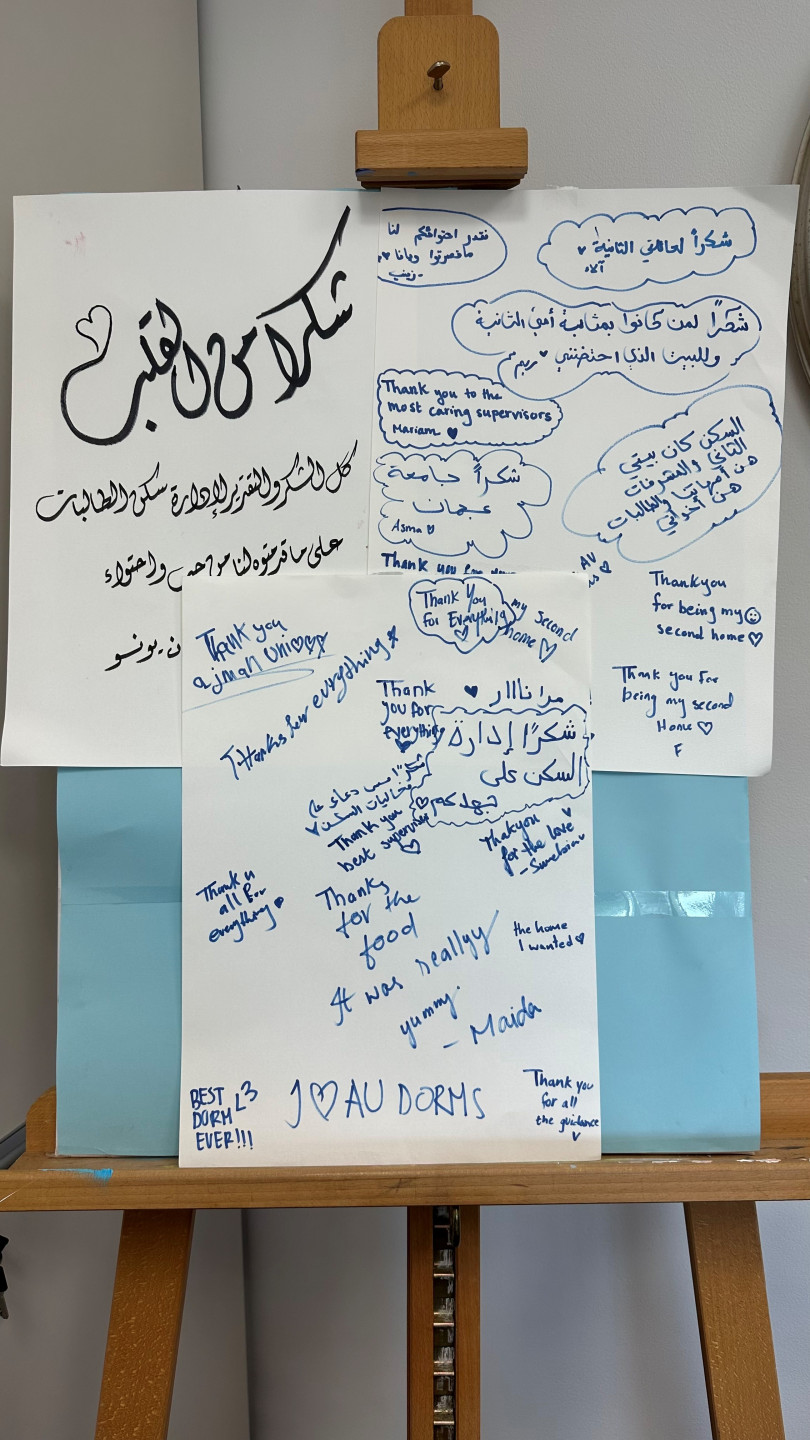 شكرا من القلب
كل الشكر والتقدير لإدارة سكن الطالبات
على ما قدمتوه لنا من حب واحتواء
نقدر احتوائكم لنا
ماقصرتوا ويانا
-زينب
شكراً لعائلتي الثانية
آلاء
شكرًا لمن كانوا بمثابة أمي الثانية
وللبيت الذي احتضنني ريم
Thank you to the
most caring supervisors
Mariam
شكراً جامعة
عجمان
Asma
السكن كان بيتي
الثاني والمشرفات
هن أمهاتي والطالبات
هن أخواتي
Thank you for
AU
Thankyou
for being my
second home
Thank you for
being my second
Home
F
Thank You
For Everything
my second
home
Thank you
ajman uni
Thanks for everything
Thank
you for
everything
شكرًا إدارة
السكن على
جهدكم
شكرًا مس دعاء
Thank you
best supervisor
Thakyou
for the love
Thank u
all for
everything
Thanks
for the
food
It was reallyy
yummy.
- Maida
the home
I wanted
BEST
DORM
EVER!!!
I ♡ AU DORMS
Thank you
for all
the guidance